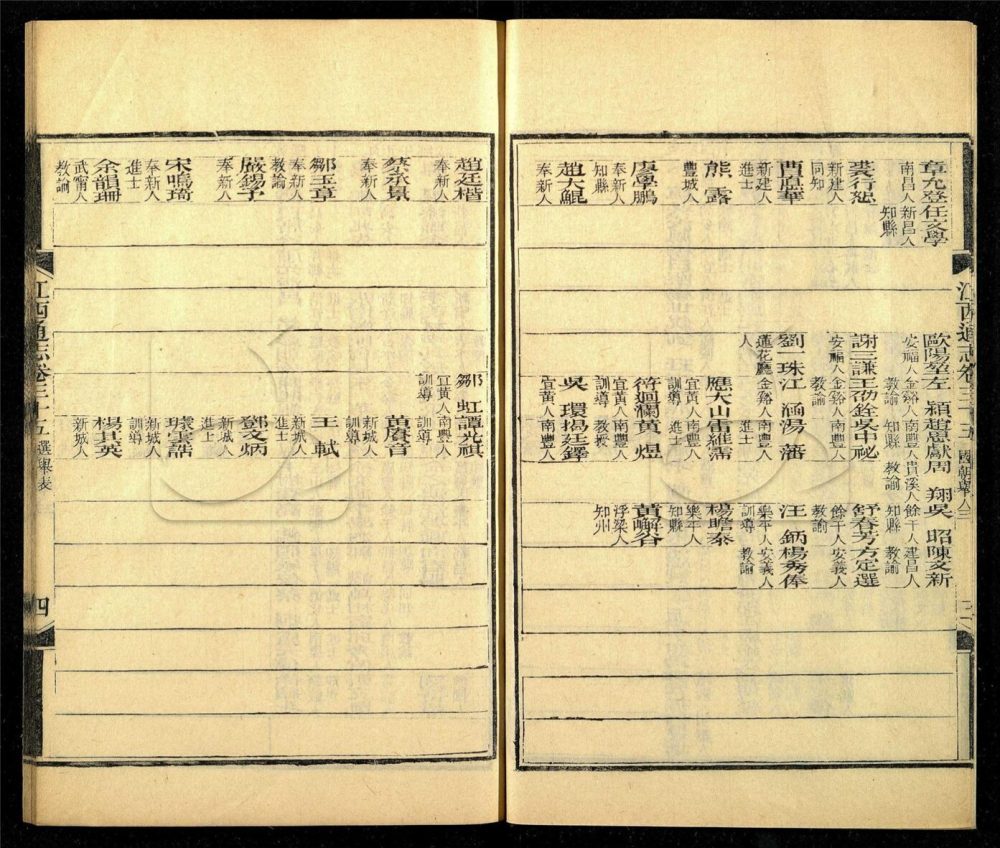 章允登 任文學 歐陽羣 左 穎 趙思猷 周 翔 吳 昭 陳文新
南昌人 新昌人 安福人 金谿人 南豐人 貴溪人 餘干人 建昌人
知縣 教諭 知縣 教諭 知縣 教諭
裘行恕 謝三謙 王 銓 吳中祕 舒春芳 方定選
新建人 安福人 金谿人 南豐人 餘干人 安義人
同知 教諭 教諭
應華 劉一珠 江 涵 湯 藩 汪 炳 楊秀俸
新建人 蓮花廳 金谿人 南豐人 樂平人 安義人
進士 人 進士 訓導 教諭
熊 露 應大山 雷維霈 楊瞻泰
豐城人 宜黃人 南豐人 樂平人
訓導 進士 知縣
廖學鵬 符迴瀾 黃 煜 黃嶰谷
奉新人 宜黃人 南豐人 浮梁人
知縣 訓導 教授 知州
趙大鯤 吳 環 揭廷鐸
奉新人 宜黃人 南豐人
趙廷楷 鄒 虹 譚光祺
奉新人 宜黃人 南豐人
訓導 訓導
蔡永景 黃賡音
奉新人 新城人
訓導
鄒玉章 王 軾
奉新人 新城人
教諭 進士
嚴錫予 鄧文炳
奉新人 新城人
進士
宋鳴琦 璩雲喆
奉新人 新城人
進士 訓導
余韻珊 楊其英
武甯人 新城人
教諭
江西通志卷三十五 選舉表 四
江西通志卷三十 國朝舉人三 三